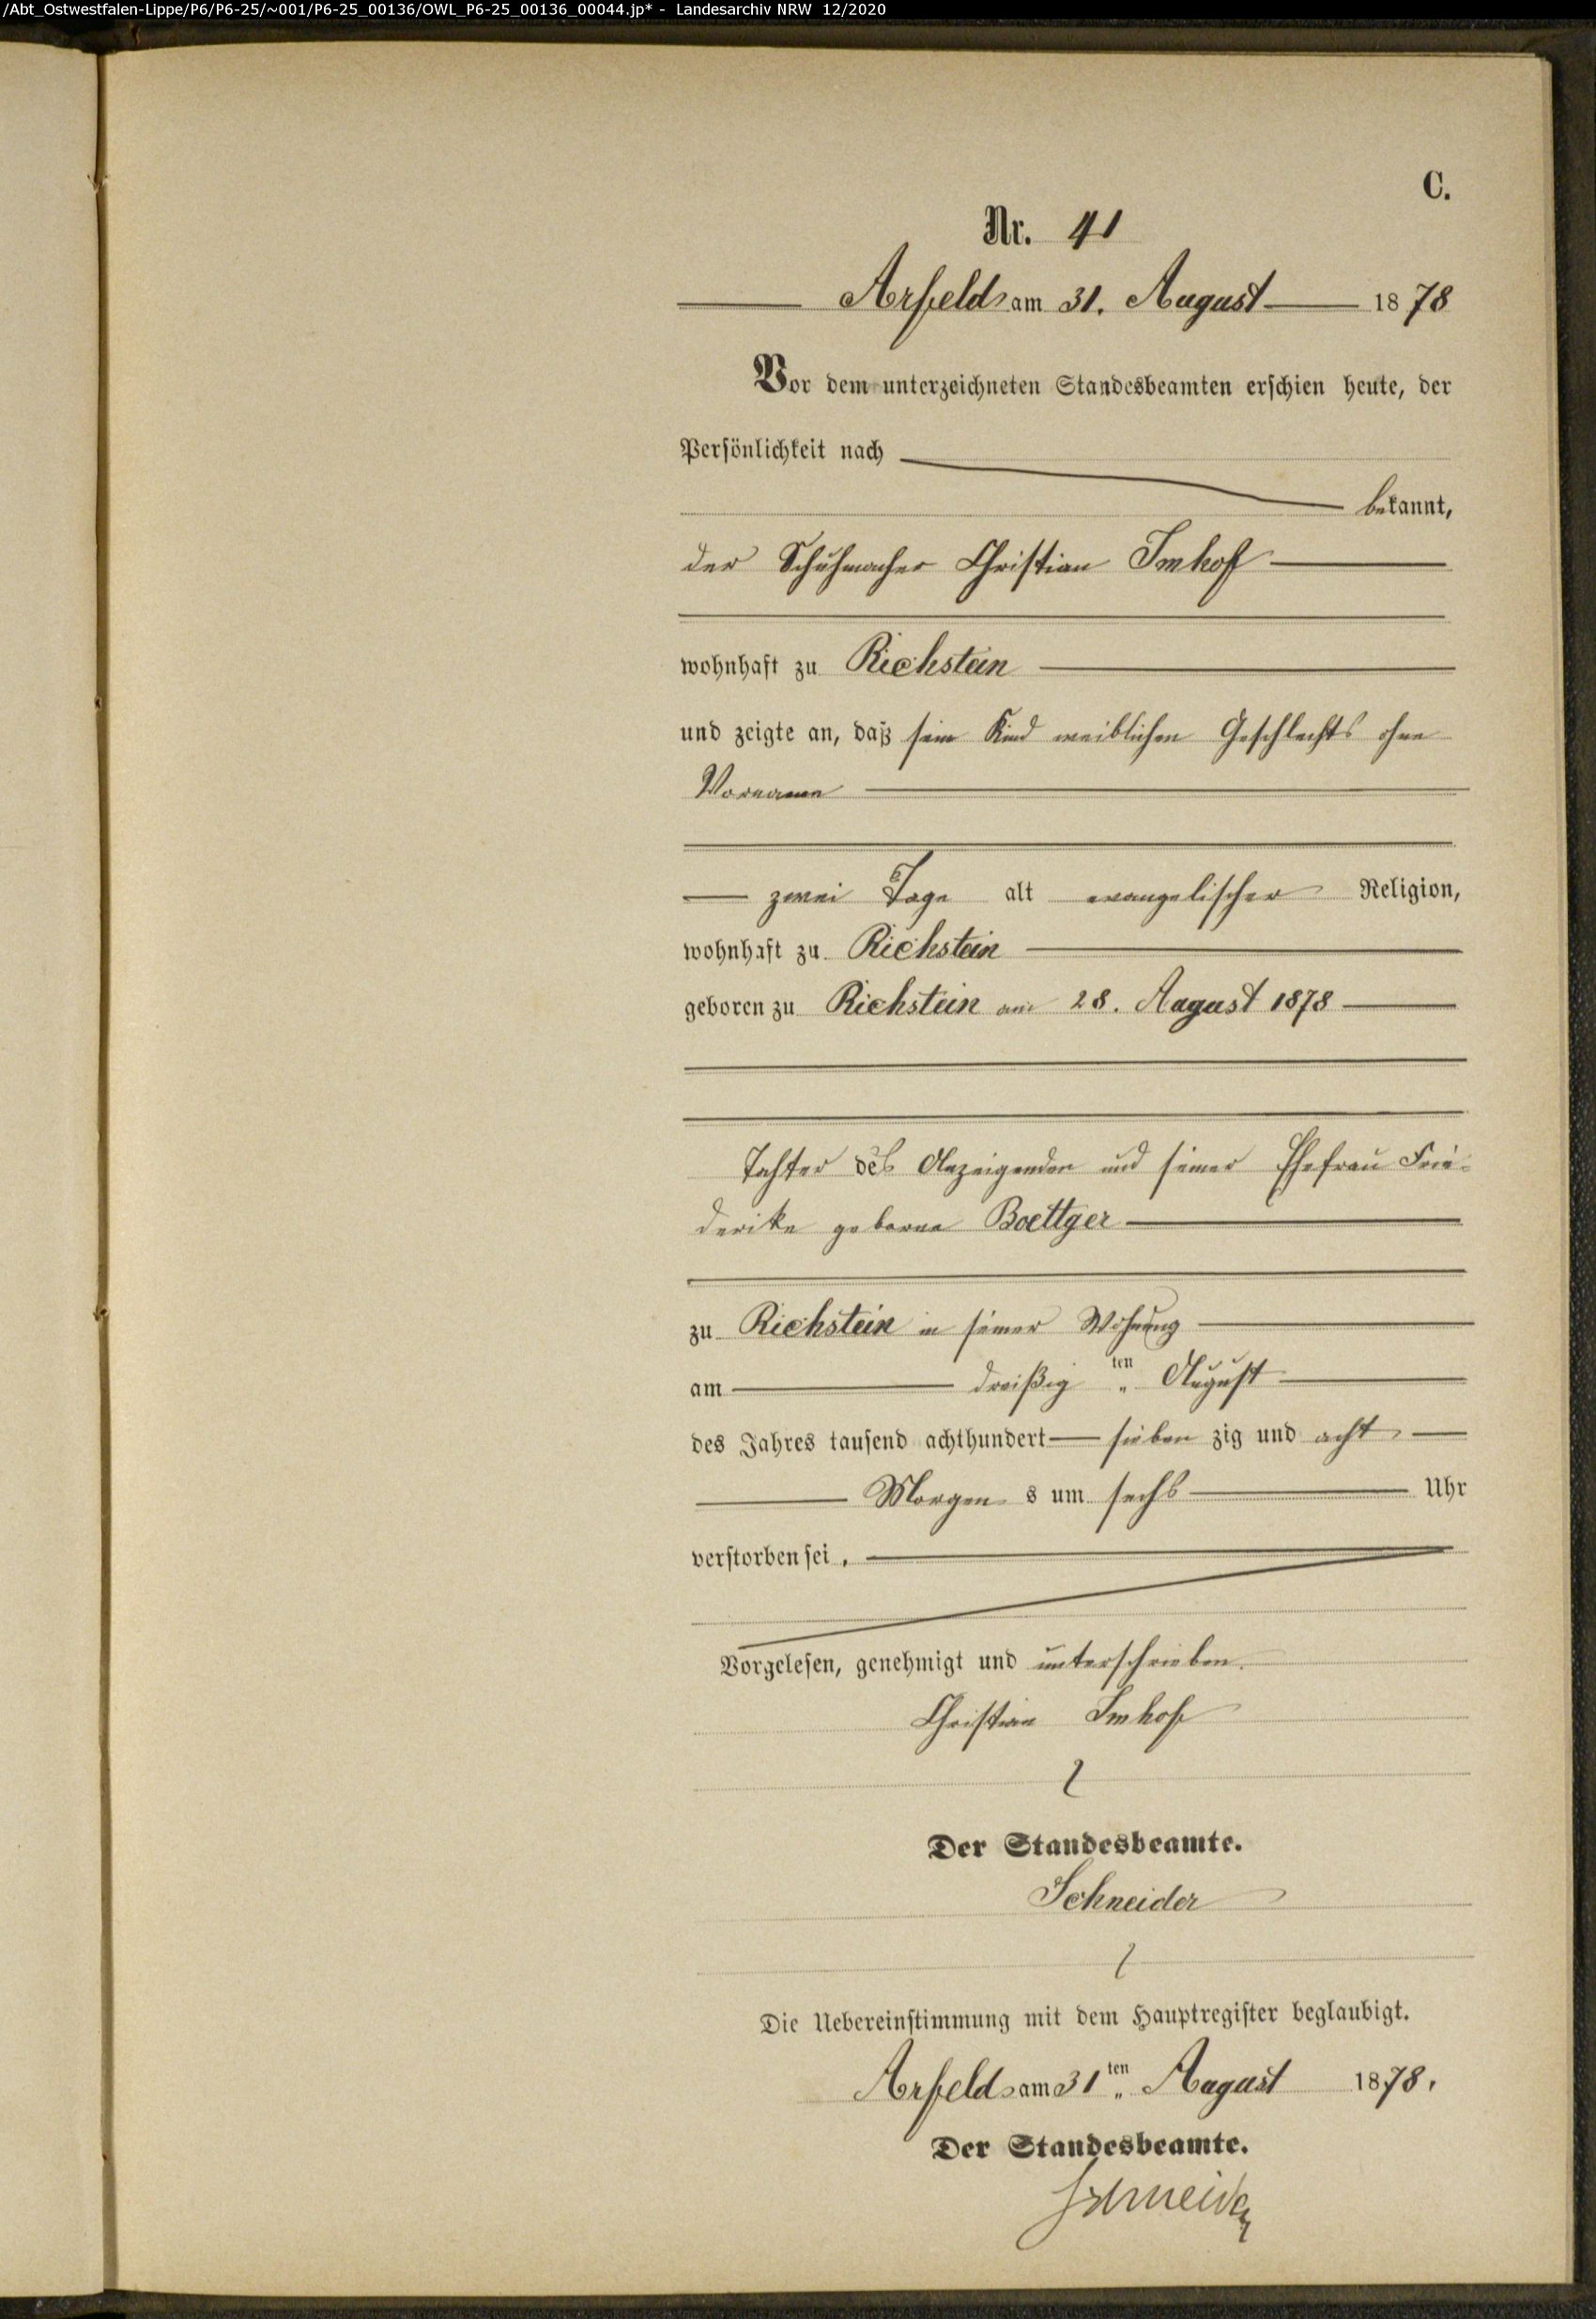 /Abt_Ostwestfalen-Lippe/P6/P6-25/~001/P6-25_00136/OWL_P6-25_00136_00044.jp* - Landesarchiv NRW 12/2020
C.
Nr. 41
Arfeld am 31. August 1878
Vor dem unterzeichneten Standesbeamten erschien heute, der
Persönlichkeit nach
bekannt,
der Schuhmacher Christian Imhof
wohnhaft zu Richstein
und zeigte an, daß sein Kind weiblichen Geschlechts ohne
Vornamen
zwei Tage alt evangelischer Religion,
wohnhaft zu Richstein
geboren zu Richstein am 28. August 1878
Tochter des Anzeigenden und seiner Ehefrau Frie-
derike geborne Boettger
zu Richstein in seiner Wohnung
am dreißig ten August
des Jahres tausend achthundert sieben zig und acht
Morgen s um sechs Uhr
verstorben sei.
Vorgelesen, genehmigt und unterschrieben.
Christian Imhof
Der Standesbeamte.
Schneider
Die Uebereinstimmung mit dem Hauptregister beglaubigt.
Arfeld am 31ten August 1878.
Der Standesbeamte.
Schneider